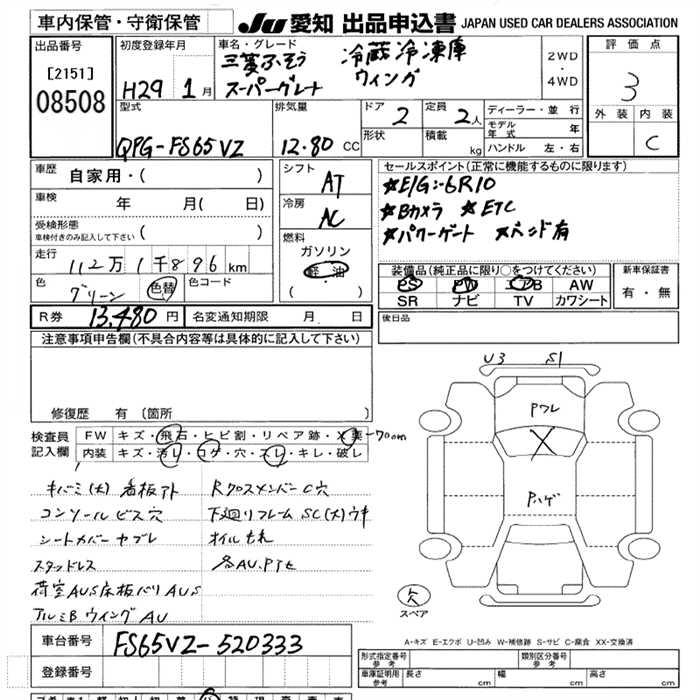 車内保管・守衛保管
JU 愛知 出品申込書 JAPAN USED CAR DEALERS ASSOCIATION
出品番号
[2151]
08508
初度登録年月
H29 1月
車名・グレード
三菱ふそう 冷蔵冷凍庫
スーパーグレート ウィング
2WD
・
4WD
評価点
3
外装 内装
C
型式
QPG-FS65VZ
排気量
12.80 CC
ドア
2
形状
定員
2人
積載
kg
ディーラー・並行
モデル年式 年
ハンドル 左・右
車歴
自家用・( )
車検
年 月( 日)
受検形態
車検付きのみ記入して下さい ( )
走行
112万1千896km
色
グリーン
色替
色コード
シフト
AT
冷房
AC
燃料
ガソリン
軽・油
( )
セールスポイント(正常に機能するものに限ります)
★E/G:-6R10
★Bカメラ ★ETC
★パワーゲート ★ベッド有
装備品(純正品に限り○をつけてください)
PS PW エアB AW
SR ナビ TV カワシート
新車保証書
有・無
R券 13,480円
名変通知期限 月 日
後日品
注意事項申告欄(不具合内容等は具体的に記入して下さい)
修復歴 有 (箇所 )
検査員記入欄
FW キズ・飛石・ヒビ割・リペア跡・X要 70cm
内装 キズ・汚レ・コゲ・穴・スレ・キレ・破レ
キバミ(大) 看板アト
コンソールビス穴
シートカバーヤブレ
スタッドレス
荷室AUS床板バリAUS
アルミBウイングAU
RクロスメンバーC穴
下廻リフレームSC(大)ウキ
オイルもれ
各AU.Pタセ
U3 S1
Pワレ
X
Pハゲ
欠
スペア
A-キズ E-エクボ U-凹み W-補修跡 S-サビ C-腐食 XX-交換済
車台番号
FS65VZ-520333
登録番号
形式指定番号
参考
類別区分番号
参考
車庫証明用
参考
長さ cm
幅 cm
高さ cm